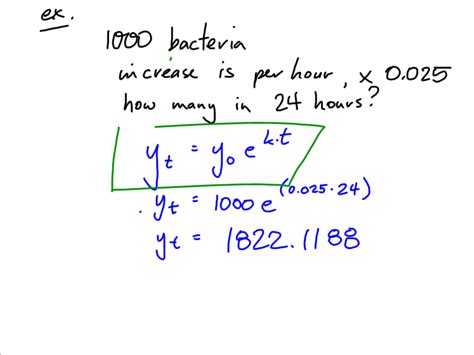 ex.
1000 bacteria
increase is per hour, × 0.025
how many in 24 hours?
y_t = y_0 e^{k·t}
y_t = 1000 e^{(0.025·24)}
y_t = 1822.1188